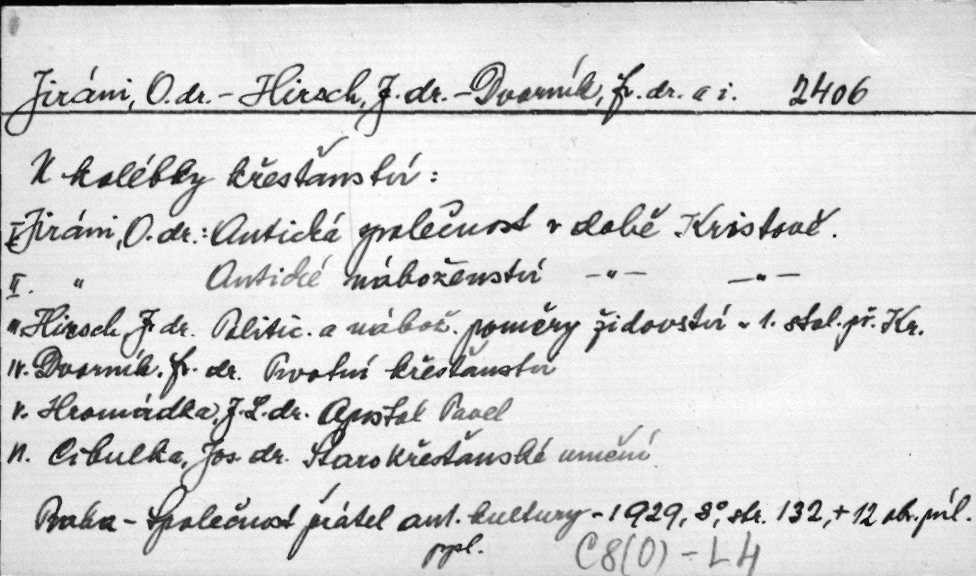 Jiráni, O. dr. - Hirsch, J. dr. - Dvorník, fr. dr. a i. 2406
U kolébky křesťanství:
I. Jiráni, O. dr.: Antická společnost v době Kristově.
II. " Antické náboženství -"- -"-
III. Hirsch, J. dr. Politic. a nábož. poměry židovství v 1. stol. př. Kr.
IV. Dvorník, fr. dr. Prvotní křesťanství
V. Hromádka, J. L. dr. Apoštol Pavel
VI. Cibulka, Jos. dr. Starokřesťanské umění
Praha - Společnost přátel ant. kultury - 1929, 8°, str. 132, + 12 obr. příl.
ppl. C8(0) - L4